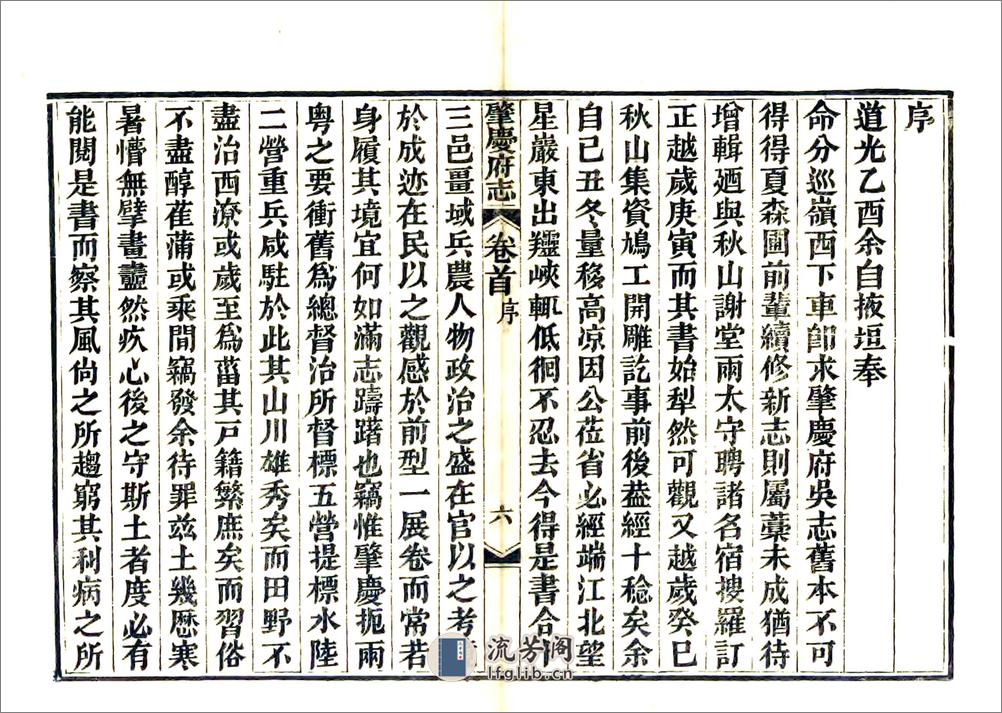 序
道光乙酉余自掖垣奉
命分巡嶺西下車卽求肇慶府吳志舊本不可
得得夏森圃前輩續修新志則屬藁未成猶待
增輯廼與秋山謝堂兩太守聘諸名宿搜羅訂
正越歲庚寅而其書始犁然可觀又越歲癸巳
秋山集資鳩工開雕訖事前後葢經十稔矣余
自己丑冬量移高凉因公莅省必經端江北望
星巖東出𦏰峽輒低徊不忍去今得是書合十
肇慶府志 卷首 序 六
三邑畺域兵農人物政治之盛在官以之考
於成迹在民以之觀感於前型一展卷而常若
身履其境宜何如滿志躊躇也竊惟肇慶扼兩
粵之要衝舊爲總督治所督標五營提標水陸
二營重兵咸駐於此其山川雄秀矣而田野不
盡治西潦或歲至爲菑其戸籍繁庶矣而習俗
不盡醇萑蒲或乘間竊發余待罪玆土幾歷寒
暑懵無擘畫衋然疚心後之守斯土者度必有
能閱是書而察其風尙之所趨窮其利病之所
流芳阁
lfglib.cn